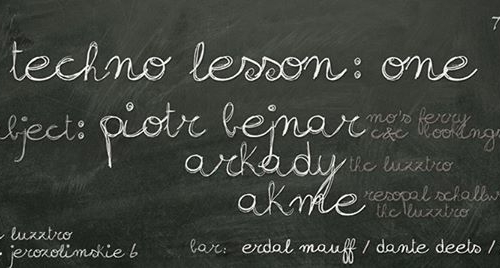 7
techno lesson: one
bject: piotr bejnar mo's ferry
c&c booking
arkady the luzztro
akme resopal schallw
the luzztro
luzztro
. jerozolimskie 6 bar: erdal mauff / dante deets /